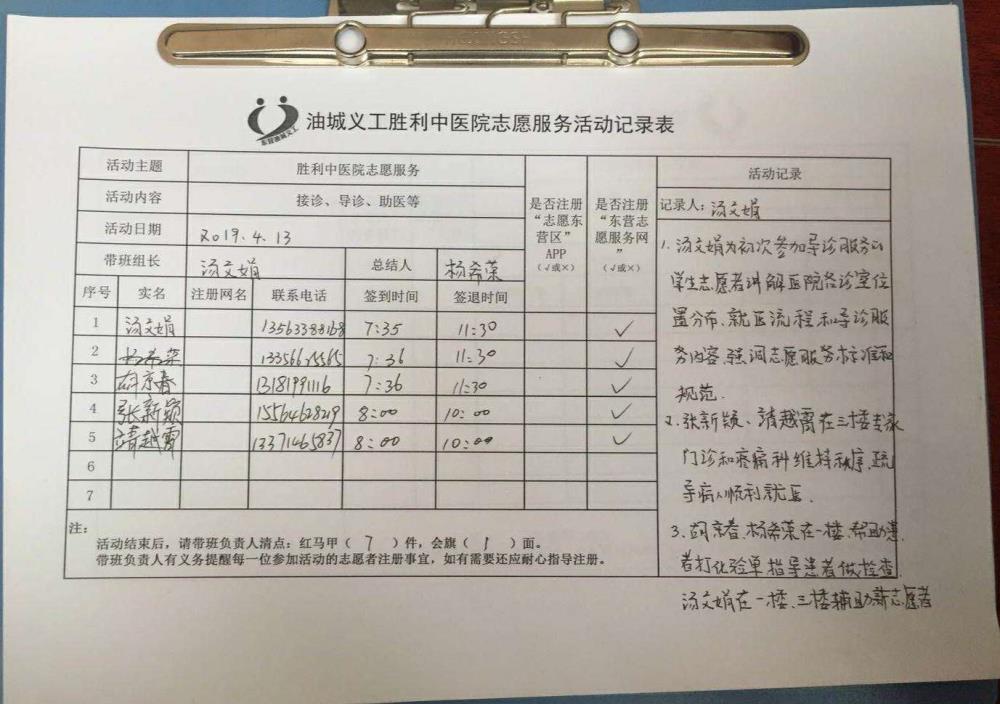 油城义工胜利中医院志愿服务活动记录表
东营油城义工
活动主题 胜利中医院志愿服务
活动内容 接诊、导诊、助医等
活动日期 2019.4.13
带班组长 汤文娟 总结人 杨希荣
序号 实名 注册网名 联系电话 签到时间 签退时间
是否注册
“志愿东
营区”
APP
(√或×)
是否注册
“东营志
愿服务网
”
(√或×)
1 汤文娟 13563388168 7:35 11:30 ✓
2 杨希荣 13356615565 7:36 11:30 ✓
3 胡京春 13181991116 7:36 11:30 ✓
4 张新颖 15564628219 8:00 10:00 ✓
5 靖越霄 13371465837 8:00 10:00 ✓
6
7
注:
活动结束后,请带班负责人清点:红马甲( 7 )件,会旗( 1 )面。
带班负责人有义务提醒每一位参加活动的志愿者注册事宜,如有需要还应耐心指导注册。
活动记录
记录人:汤文娟
1. 汤文娟为初次参加导诊服务的
学生志愿者讲解医院各诊室位
置分布、就医流程和导诊服
务内容,强调志愿服务标准和
规范.
2. 张新颖、靖越霄在三楼专家
门诊和疼痛科维持秩序,疏
导病人顺利就医.
3. 胡京春、杨希荣在一楼,帮助患
者打化验单指导患者做检查.
汤文娟在一楼、三楼辅助新志愿者